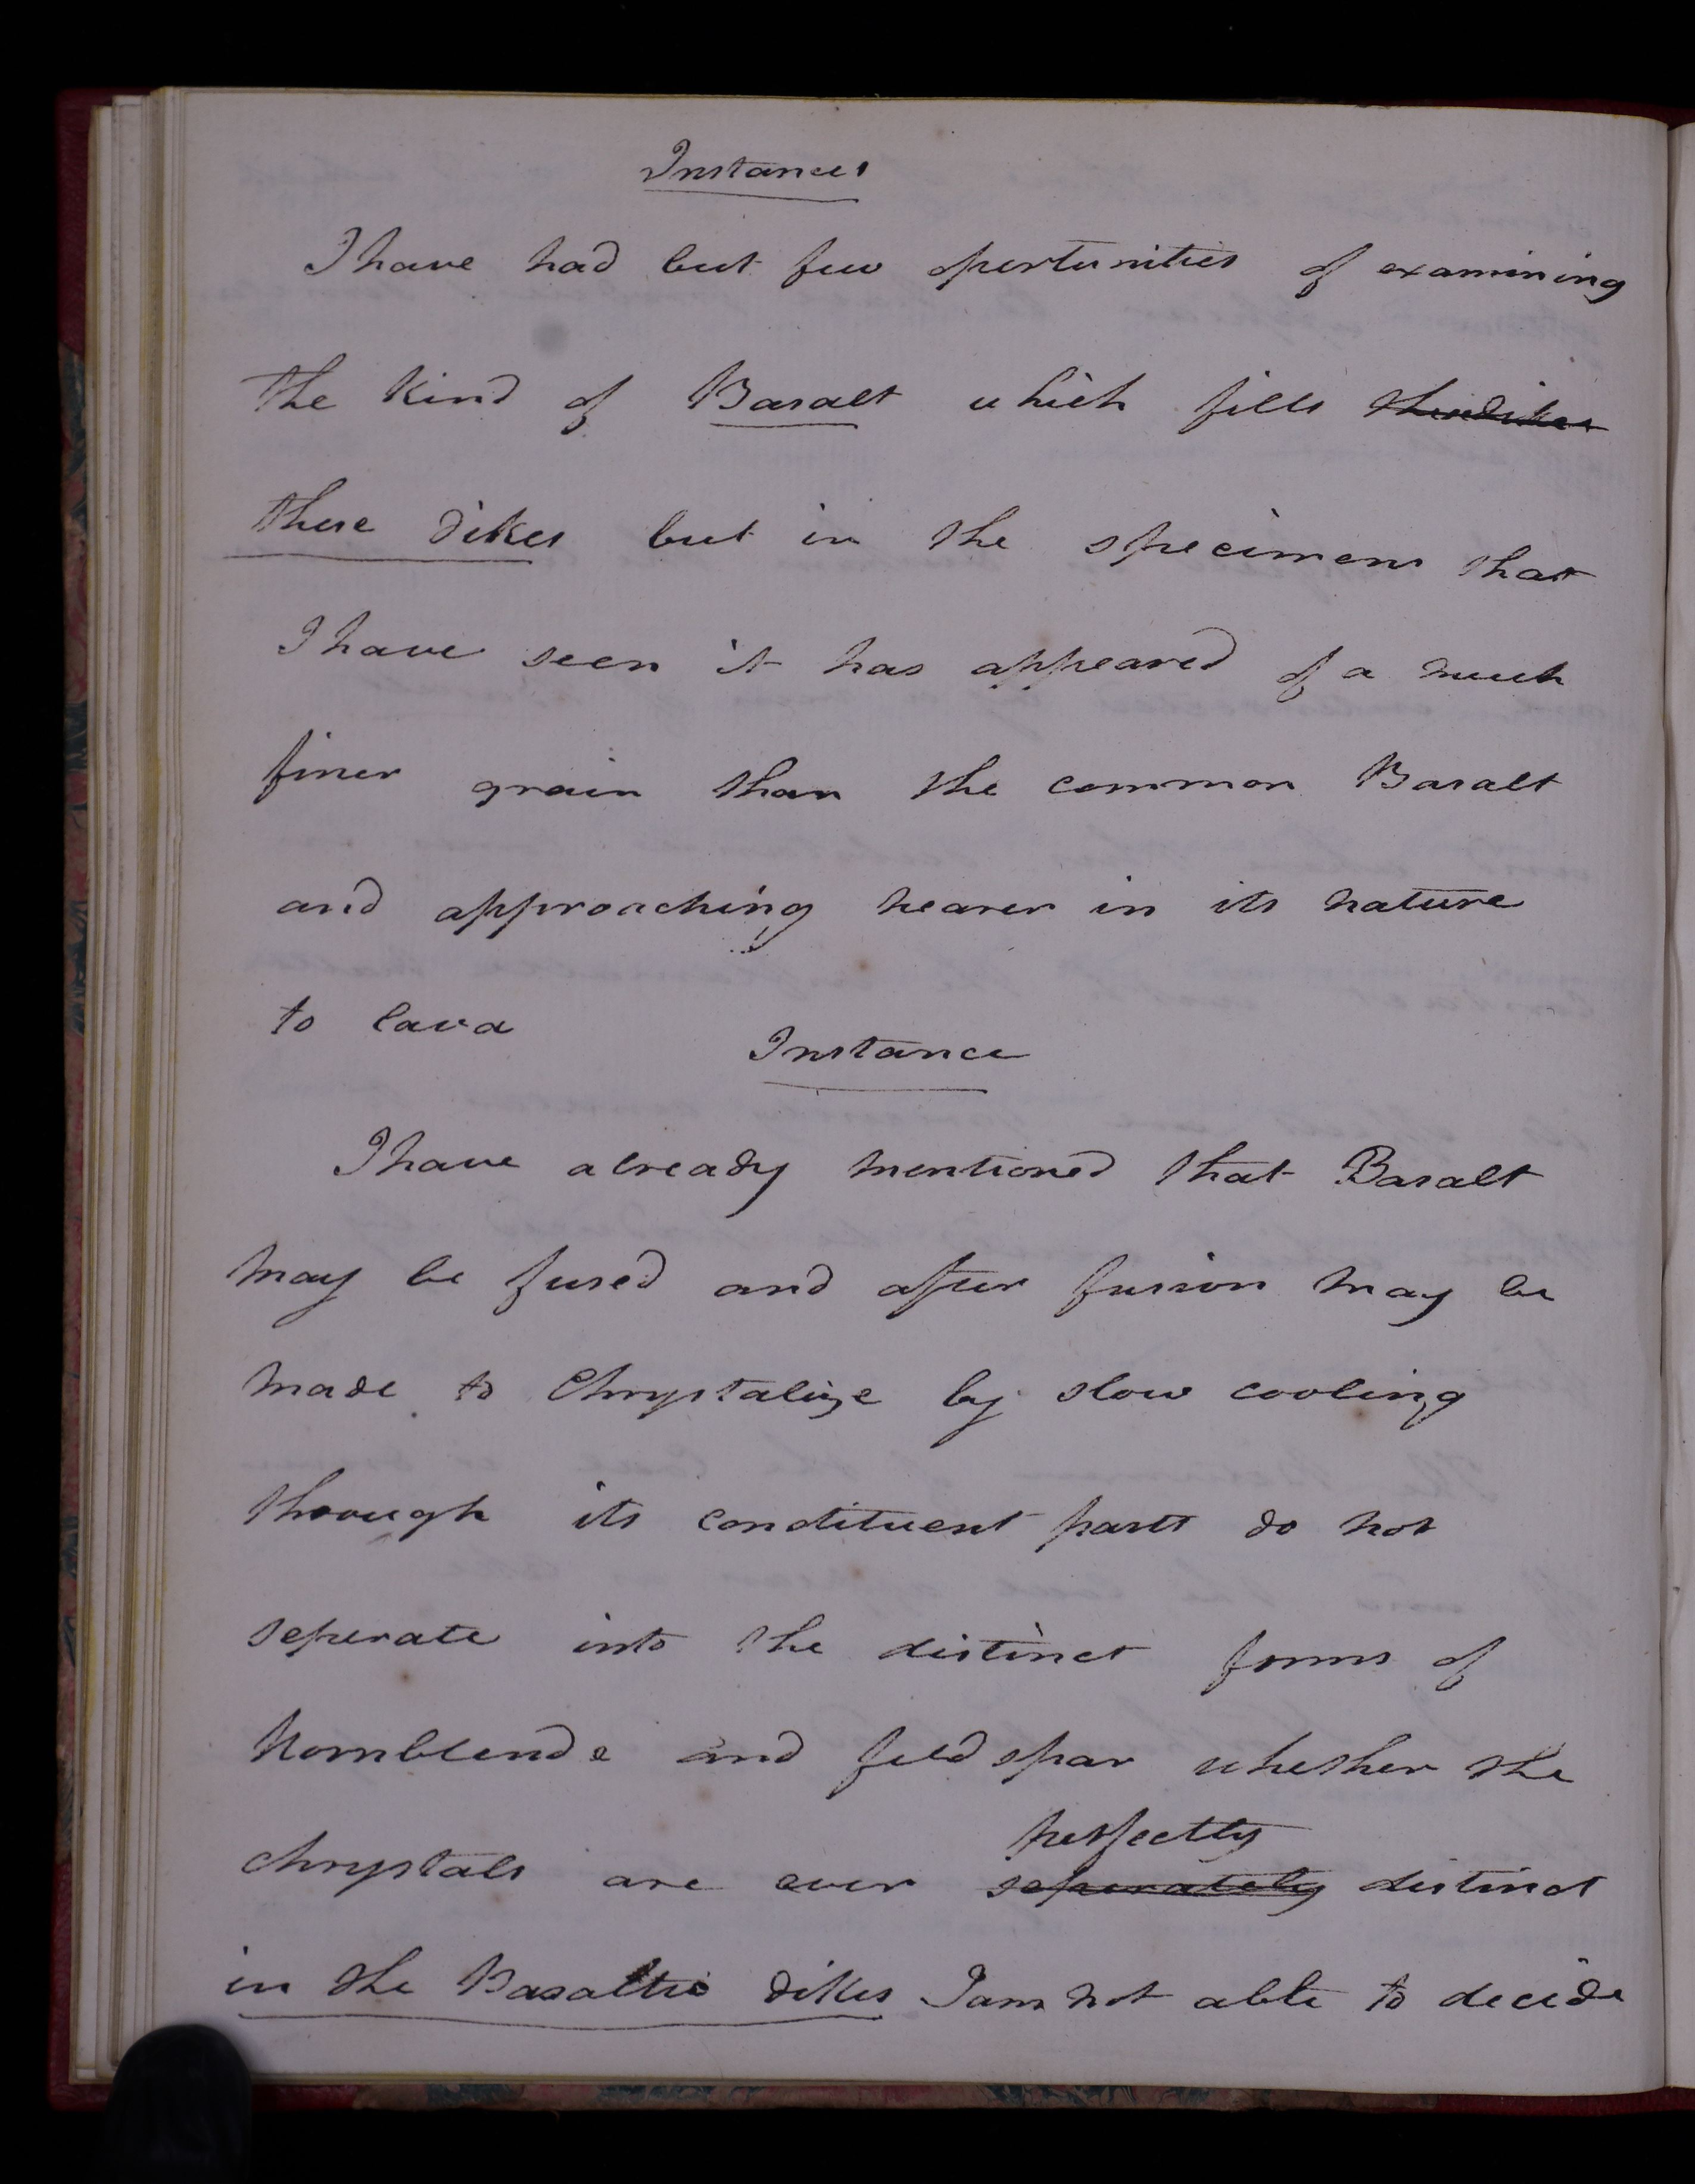 Instances
I have had but few opertunities of examining
the kind of Basalt which fills these dikes
these dikes but in the specimens that
I have seen it has appeared of a much
finer grain than the common Basalt
and approaching nearer in its nature
to lava
Instance
I have already mentioned that Basalt
may be fused and after fusion may be
made to Chrystalize by slow cooling
through its constituent parts do not
seperate into the distinct forms of
hornblende and feldspar whether the
perfectly
chrystals are ever seperately distinct
in the Basaltic dikes I am not able to decide